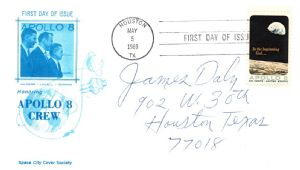 FIRST DAY OF ISSUE
APOLLO 8
Honoring
APOLLO 8
CREW
Space City Cover Society
HOUSTON
MAY
5
1969
TX
FIRST DAY OF ISSUE
In the beginning
God...
APOLLO 8
James Daly
902 W. 30th
Houston Texas
77018